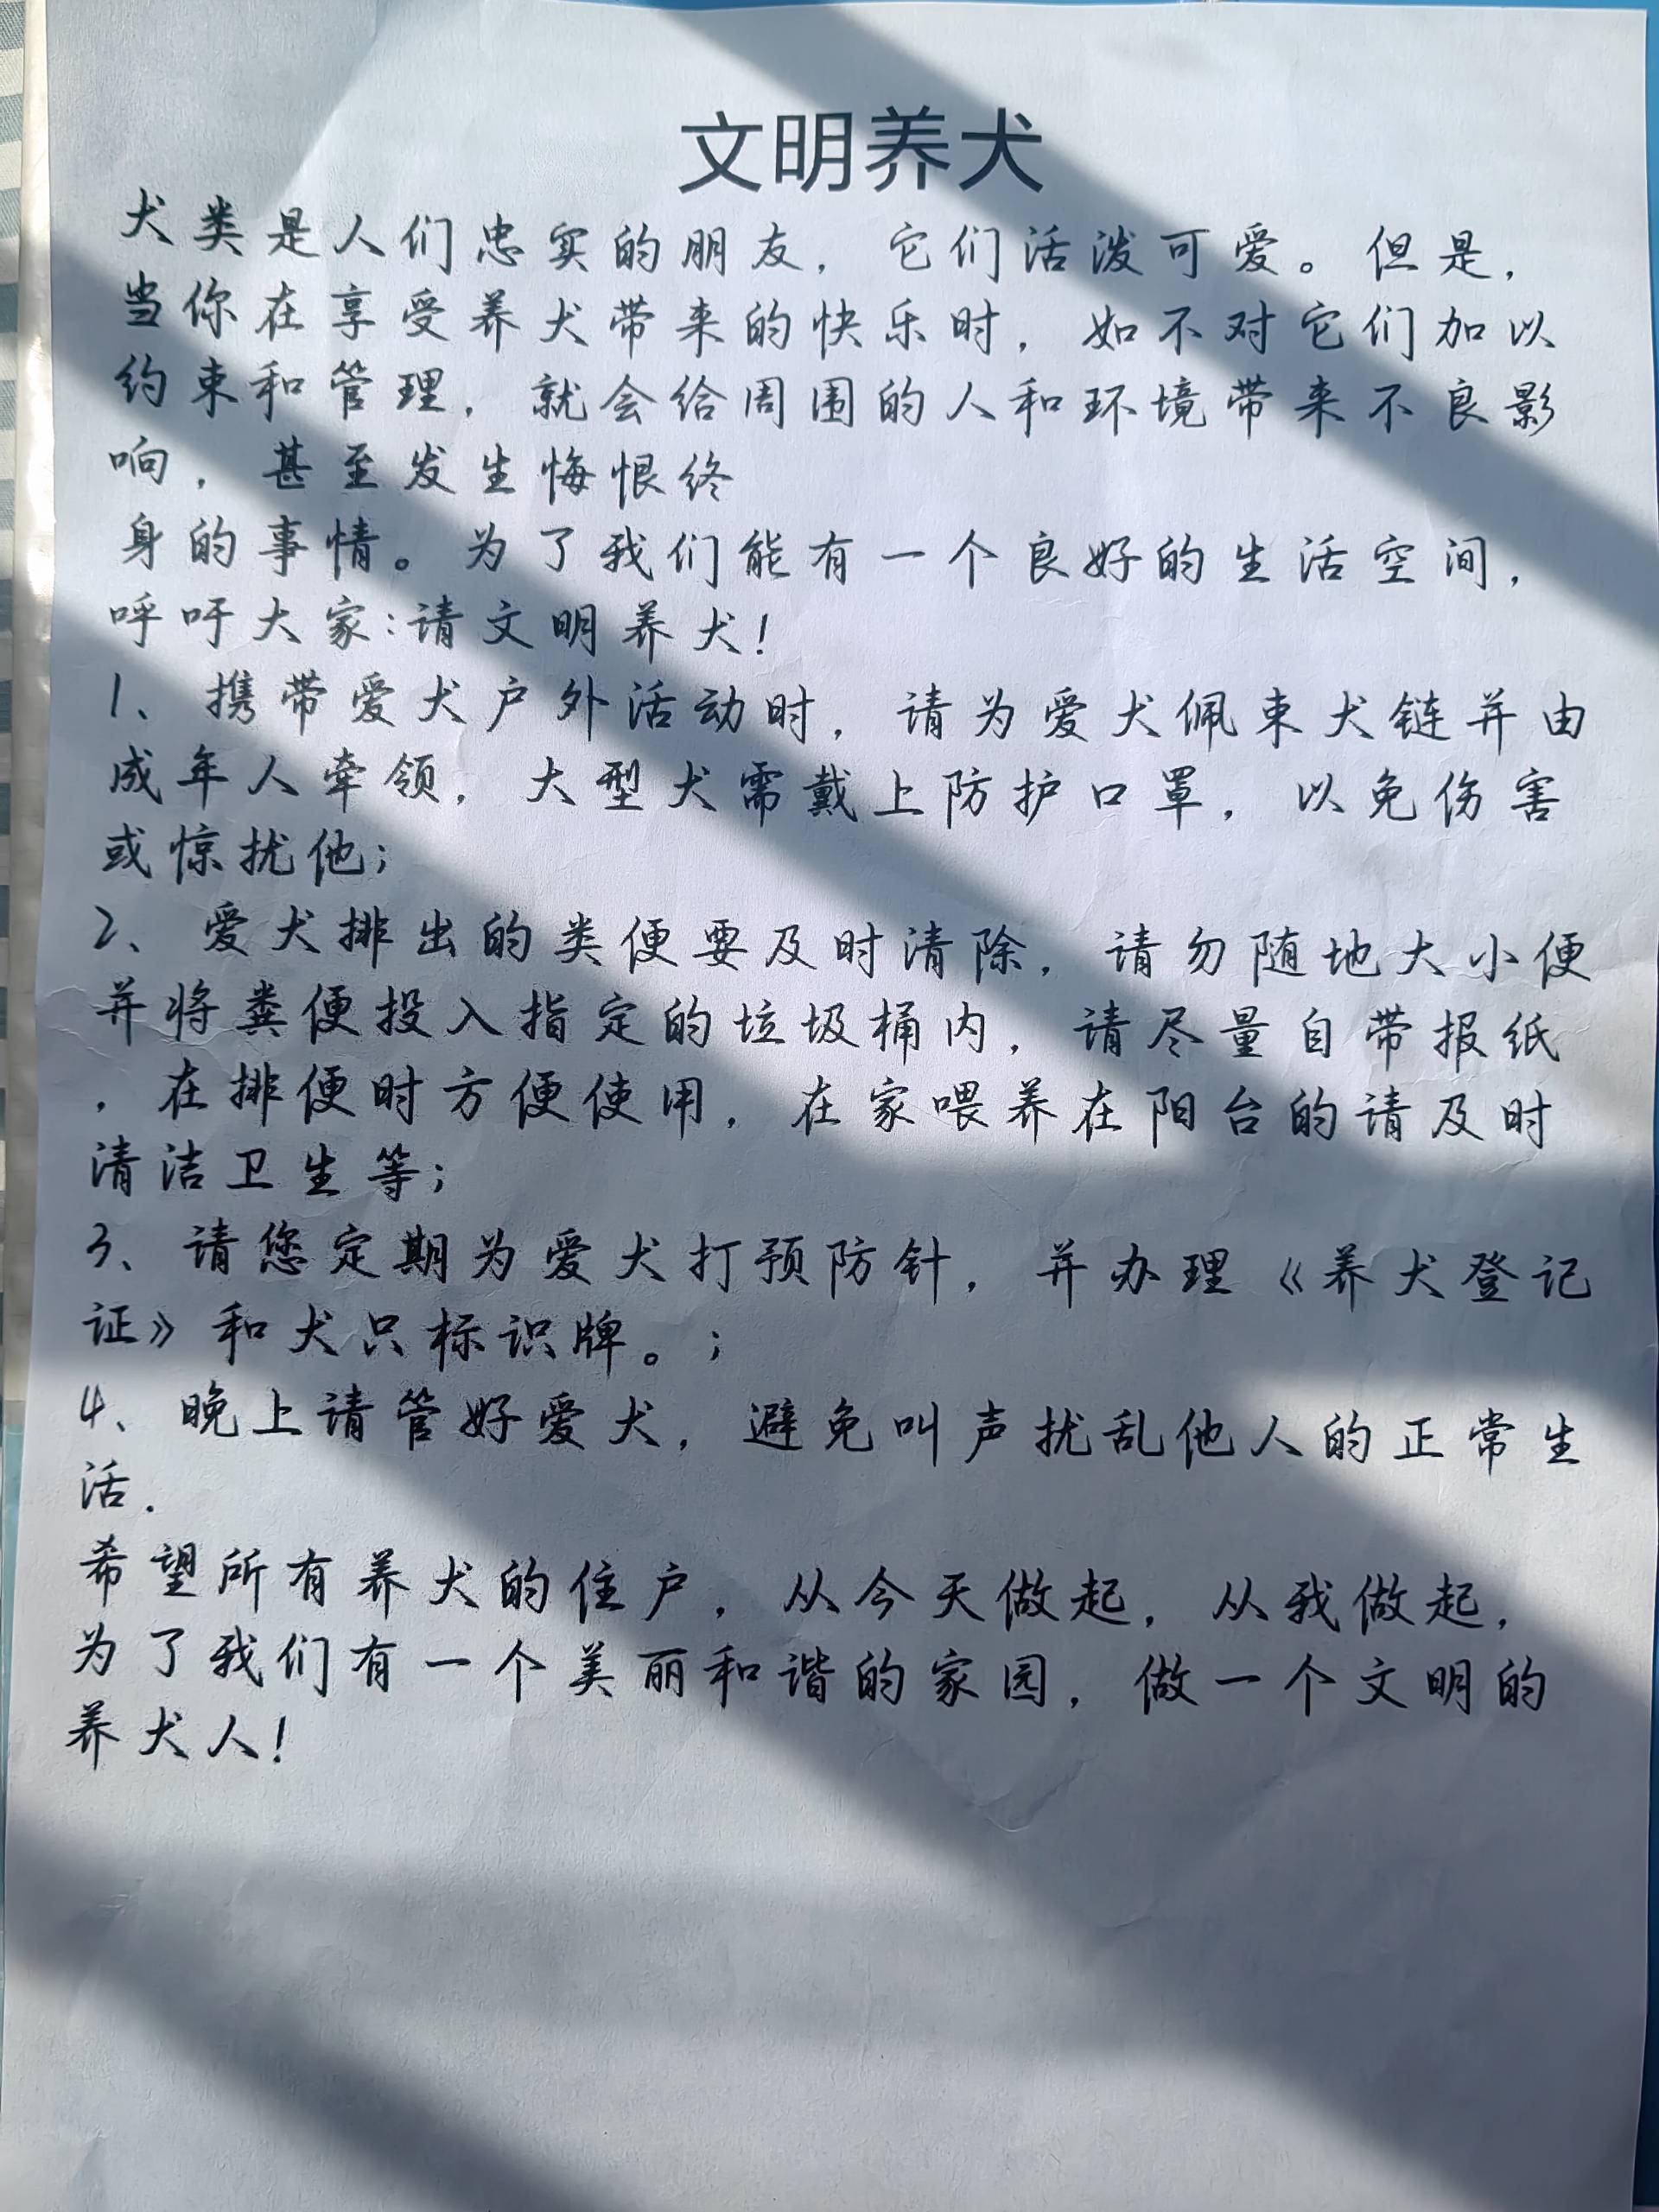 文明养犬
犬类是人们忠实的朋友，它们活泼可爱。但是，
当你在享受养犬带来的快乐时，如不对它们加以
约束和管理，就会给周围的人和环境带来不良影
响，甚至发生悔恨终
身的事情。为了我们能有一个良好的生活空间，
呼吁大家：请文明养犬！
1、携带爱犬户外活动时，请为爱犬佩束犬链并由
成年人牵领，大型犬需戴上防护口罩，以免伤害
或惊扰他；
2、爱犬排出的类便要及时清除，请勿随地大小便
并将粪便投入指定的垃圾桶内，请尽量自带报纸
，在排便时方便使用，在家喂养在阳台的请及时
清洁卫生等；
3、请您定期为爱犬打预防针，并办理《养犬登记
证》和犬只标识牌。；
4、晚上请管好爱犬，避免叫声扰乱他人的正常生
活.
希望所有养犬的住户，从今天做起，从我做起，
为了我们有一个美丽和谐的家园，做一个文明的
养犬人！